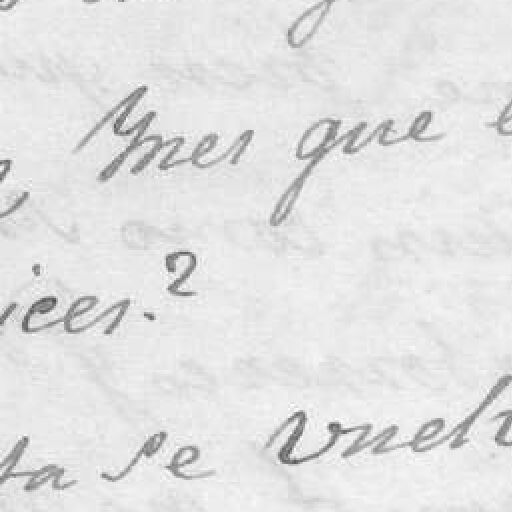 Ynes que
ices.?
ta se vuelt